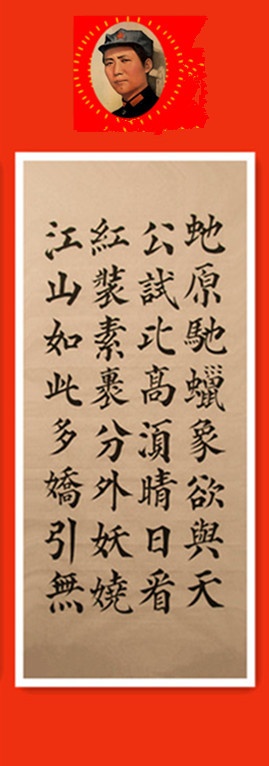 虵原馳蠟象欲與天
公試比髙湏晴日看
紅裝素裹分外妖嬈
江山如此多嬌引無